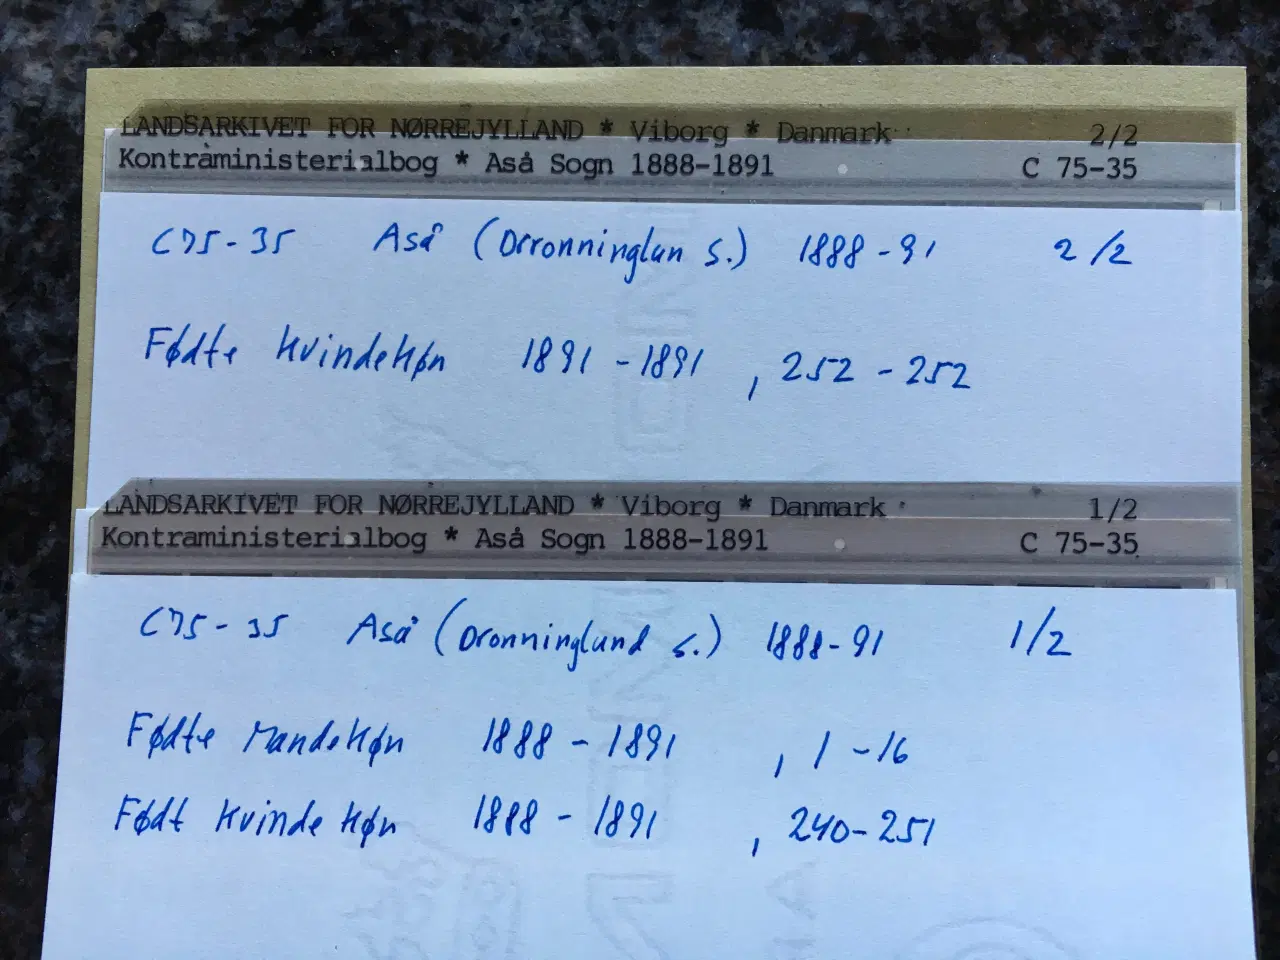 LANDSARKIVET FOR NØRREJYLLAND * Viborg * Danmark 2/2
Kontraministerialbog * Aså Sogn 1888-1891 C 75-35
C75-35 Aså (Drronninglun S.) 1888-91 2/2
Fødte KvindeKøn 1891-1891, 252-252
LANDSARKIVET FOR NØRREJYLLAND * Viborg * Danmark 1/2
Kontraministerialbog * Aså Sogn 1888-1891 C 75-35
C75-35 Aså (Dronninglund S.) 1888-91 1/2
Fødte MandeKøn 1888-1891, 1-16
Født Kvinde Køn 1888-1891, 240-251